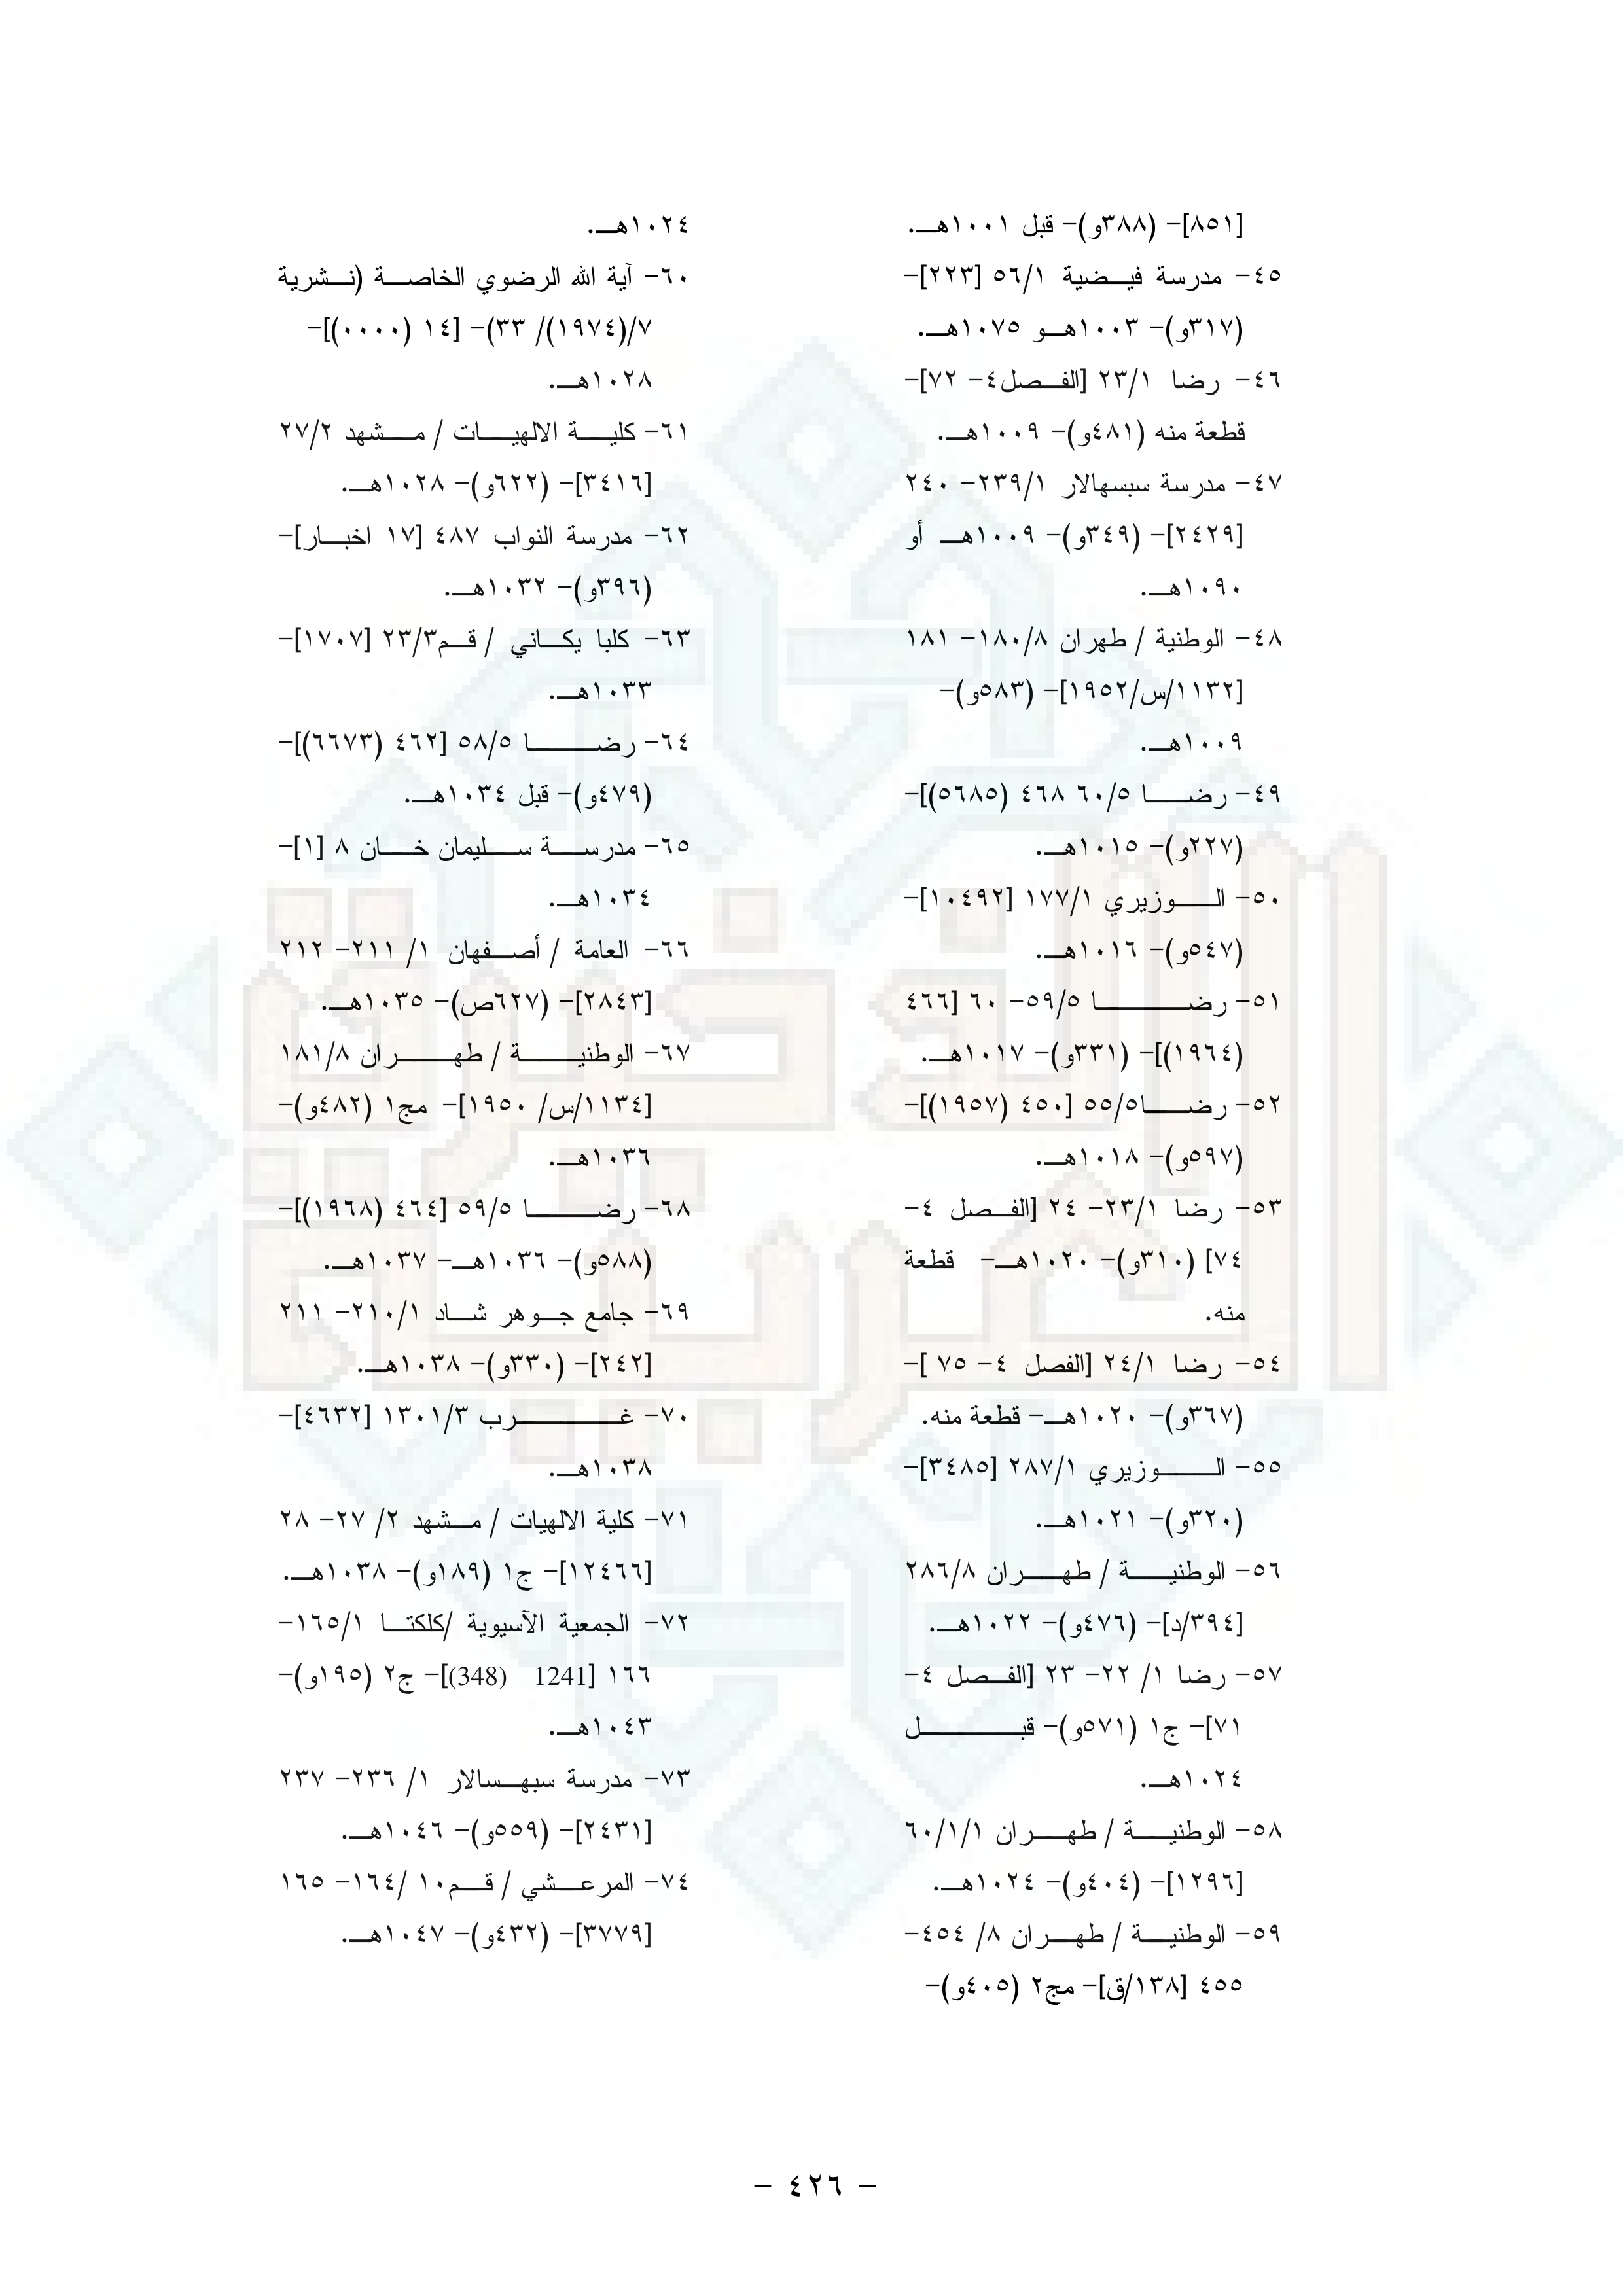 [٨٥١]- (٣٨٨و)- قبل ١٠٠١هـ.
٤٥- مدرسة فيضية ٥٦/١ [٢٢٣]-
(٣١٧و)- ١٠٠٣هـو ١٠٧٥هـ.
٤٦- رضا ٢٣/١ [الفصل٤- ٧٢]-
قطعة منه (٤٨١و)- ١٠٠٩هـ.
٤٧- مدرسة سبسهالار ٢٣٩/١- ٢٤٠
[٢٤٢٩]- (٣٤٩و)- ١٠٠٩هـ أو
١٠٩٠هـ.
٤٨- الوطنية / طهران ١٨٠/٨- ١٨١
[١١٣٢/س/١٩٥٢]- (٥٨٣و)-
١٠٠٩هـ.
٤٩- رضا ٦٠/٥ ٤٦٨ (٥٦٨٥)]-
(٢٢٧و)- ١٠١٥هـ.
٥٠- الوزيري ١٧٧/١ [١٠٤٩٢]-
(٥٤٧و)- ١٠١٦هـ.
٥١- رضا ٥٩/٥- ٦٠ [٤٦٦
(١٩٦٤)]- (٣٣١و)- ١٠١٧هـ.
٥٢- رضا٥٥/٥ [٤٥٠ (١٩٥٧)]-
(٥٩٧و)- ١٠١٨هـ.
٥٣- رضا ٢٣/١- ٢٤ [الفصل ٤-
٧٤] (٣١٠و)- ١٠٢٠هـ- قطعة
منه.
٥٤- رضا ٢٤/١ [الفصل ٤- ٧٥ ]-
(٣٦٧و)- ١٠٢٠هـ- قطعة منه.
٥٥- الوزيري ٢٨٧/١ [٣٤٨٥]-
(٣٢٠و)- ١٠٢١هـ.
٥٦- الوطنية / طهران ٢٨٦/٨
[٣٩٤/د]- (٤٧٦و)- ١٠٢٢هـ.
٥٧- رضا ١/ ٢٢- ٢٣ [الفصل ٤-
٧١]- ج١ (٥٧١و)- قبل
١٠٢٤هـ.
٥٨- الوطنية / طهران ٦٠/١/١
[١٢٩٦]- (٤٠٤و)- ١٠٢٤هـ.
٥٩- الوطنية / طهران ٨/ ٤٥٤-
٤٥٥ [١٣٨/ق]- مج٢ (٤٠٥و)-
١٠٢٤هـ.
٦٠- آية الله الرضوي الخاصة (نشرية
٧/(١٩٧٤)/ ٣٣)- [١٤ (٠٠٠٠)]-
١٠٢٨هـ.
٦١- كلية الالهيات / مشهد ٢٧/٢
[٣٤١٦]- (٦٢٢و)- ١٠٢٨هـ.
٦٢- مدرسة النواب ٤٨٧ [١٧ اخبار]-
(٣٩٦و)- ١٠٣٢هـ.
٦٣- كلبا يكاني / قم٢٣/٣ [١٧٠٧]-
١٠٣٣هـ.
٦٤- رضا ٥٨/٥ [٤٦٢ (٦٦٧٣)]-
(٤٧٩و)- قبل ١٠٣٤هـ.
٦٥- مدرسة سليمان خان ٨ [١]-
١٠٣٤هـ.
٦٦- العامة / أصفهان ١/ ٢١١- ٢١٢
[٢٨٤٣]- (٦٢٧ص)- ١٠٣٥هـ.
٦٧- الوطنية / طهران ١٨١/٨
[١١٣٤/س/ ١٩٥٠]- مج١ (٤٨٢و)-
١٠٣٦هـ.
٦٨- رضا ٥٩/٥ [٤٦٤ (١٩٦٨)]-
(٥٨٨و)- ١٠٣٦هـ- ١٠٣٧هـ.
٦٩- جامع جوهر شاد ٢١٠/١- ٢١١
[٢٤٢]- (٣٣٠و)- ١٠٣٨هـ.
٧٠- غرب ١٣٠١/٣ [٤٦٣٢]-
١٠٣٨هـ.
٧١- كلية الالهيات / مشهد ٢/ ٢٧- ٢٨
[١٢٤٦٦]- ج١ (١٨٩و)- ١٠٣٨هـ.
٧٢- الجمعية الآسيوية /كلكتا ١٦٥/١-
١٦٦ [1241 (348)]- ج٢ (١٩٥و)-
١٠٤٣هـ.
٧٣- مدرسة سبهسالار ١/ ٢٣٦- ٢٣٧
[٢٤٣١]- (٥٥٩و)- ١٠٤٦هـ.
٧٤- المرعشي / قم١٠ /١٦٤- ١٦٥
[٣٧٧٩]- (٤٣٢و)- ١٠٤٧هـ.
- ٤٢٦ -